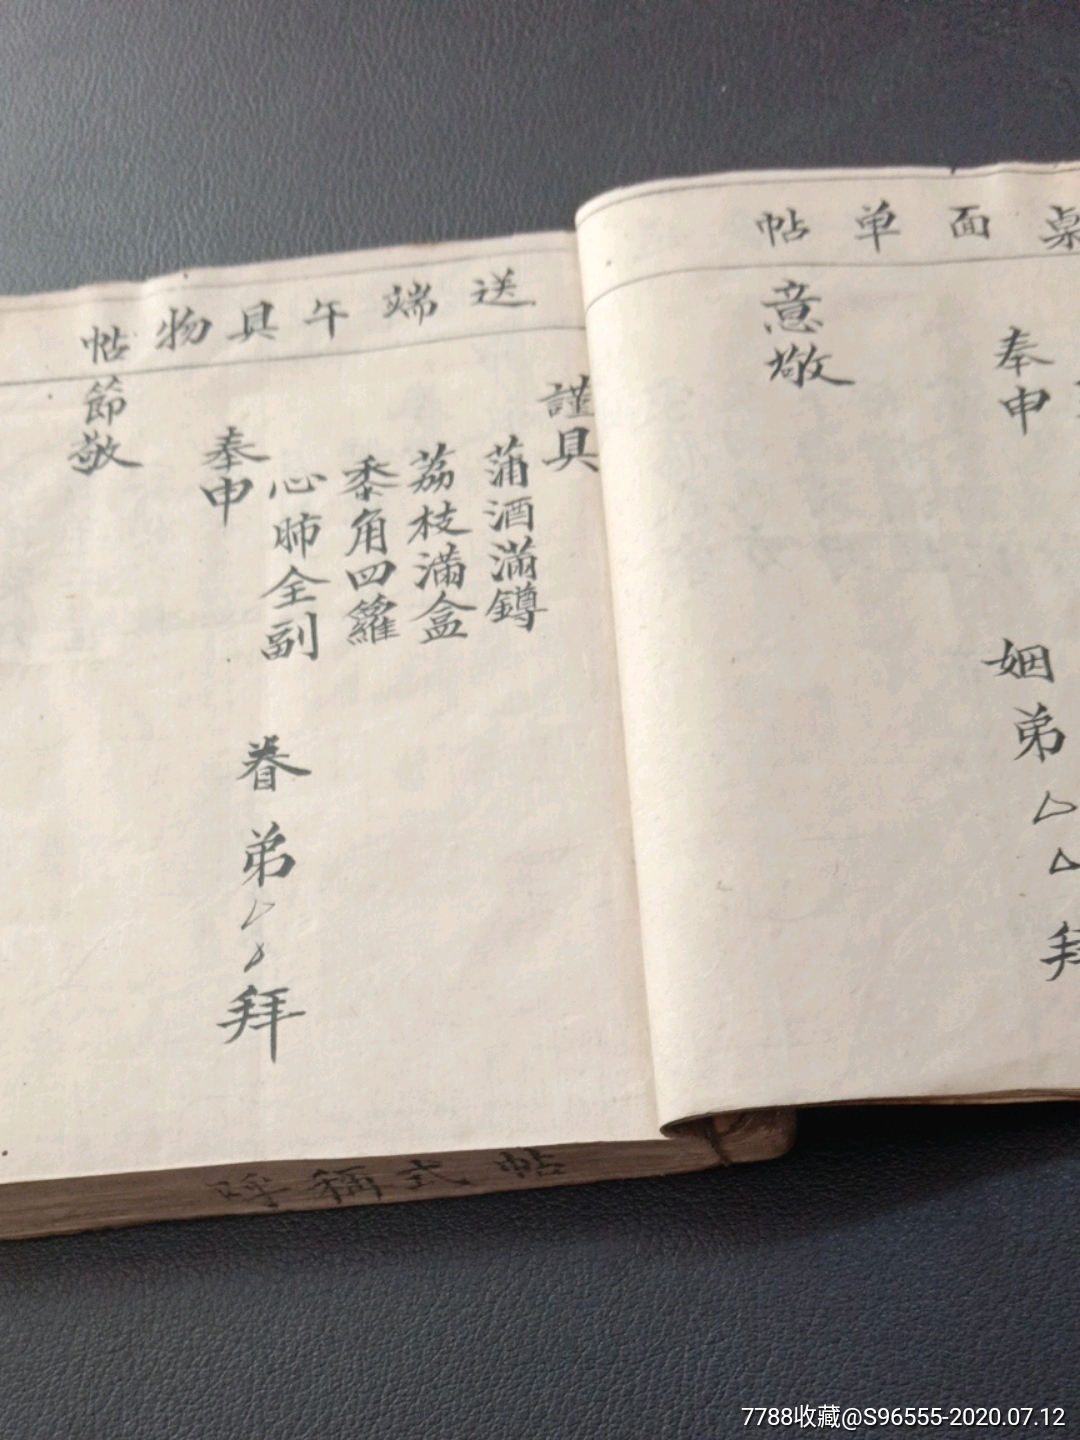 桌面单帖
奉申
意敬
姻弟△△拜
送端午具物帖
謹具
蒲酒滿罇
荔枝滿盒
黍角四籮
心肺全副
奉申
節敬
眷弟△△拜
呼稱式帖
7788收藏@S96555-2020.07.12